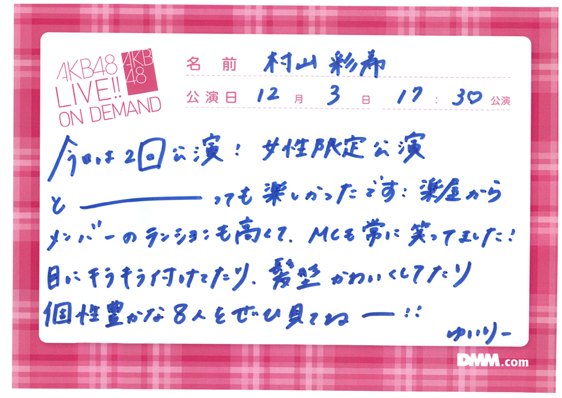 AKB48
LIVE!!
ON DEMAND
AKB
48
名前 村山彩希
公演日 12月3日 17:30公演
今日は2回公演! 女性限定公演
と――――っても楽しかったです! 楽屋から
メンバーのテンションも高くて、MCも常に笑ってました!
目にキラキラ付けてたり、髪型かわいくしてたり
個性豊かな8人をぜひ見てねー!!
ゆいりー
DMM.com